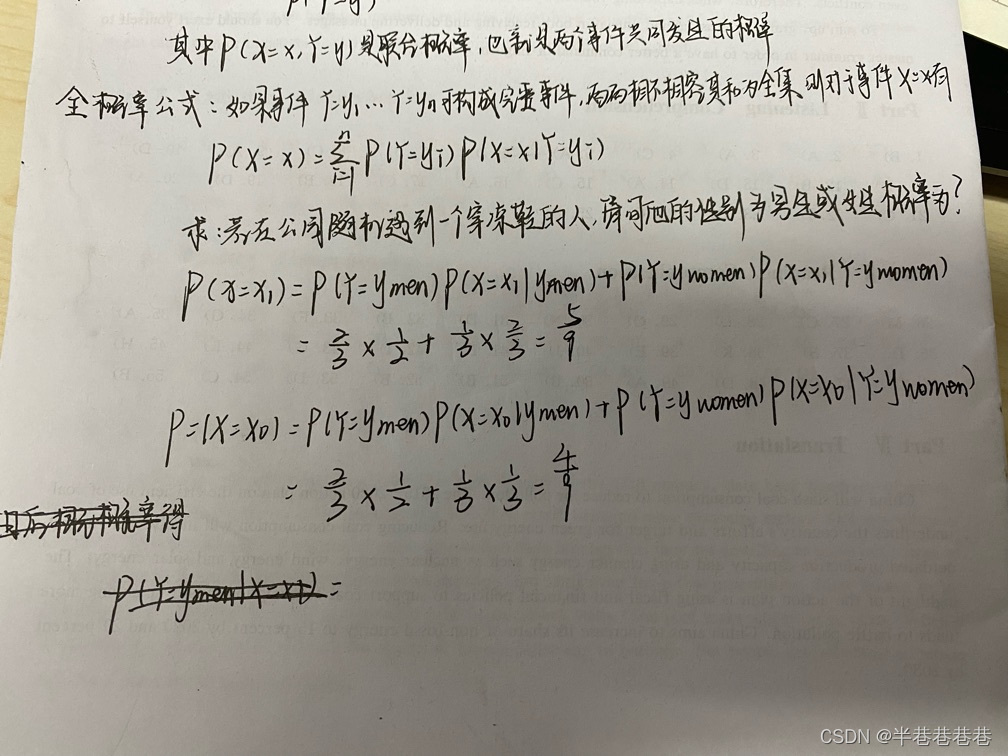 P(Y=y)
其中P(X=x,Y=y)是联合概率,也就是两个事件共同发生的概率
全概率公式:如果事件Y=y₁…Y=yn可构成完要事件,两两相不相容其和为全集 则对于事件X=x有
P(X=x)=∑ⁿᵢ₌₁P(Y=yi)P(X=x|Y=yi)
求:若在公司随机遇到一个穿凉鞋的人,请问他的性别为男生或女生概率为?
P(X=x₁)=P(Y=ymen)P(X=x₁|ymen)+P(Y=ywomen)P(X=x₁|Y=ywomen)
=2/3×1/2+1/3×2/3=5/9
P=(X=x₀)=P(Y=ymen)P(X=x₀|ymen)+P(Y=ywomen)P(X=x₀|Y=ywomen)
=2/3×1/2+1/3×1/3=4/9
概率得
P(Y=ymen|X=x₁)=
Part Ⅳ Translation
CSDN @半巷巷巷巷